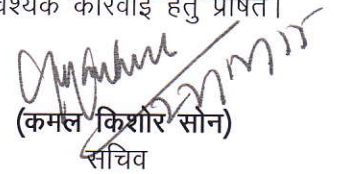 वश्यक कारवाई हेतु प्रेषित।
(कमल किशोर सोन)
सचिव